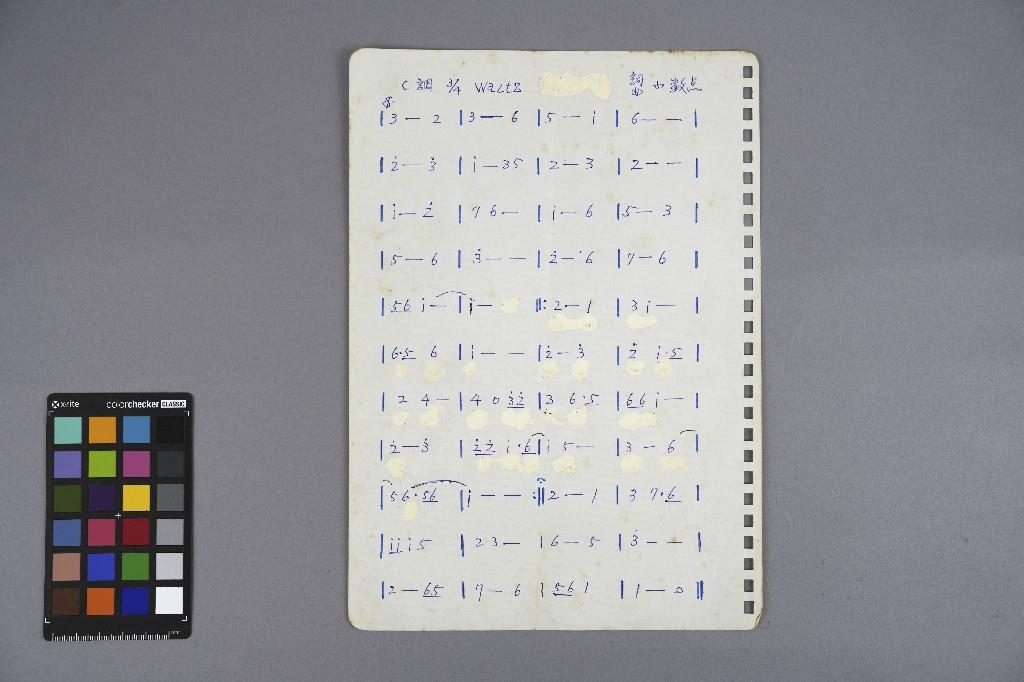 C調 3/4 Waltz 詞曲 小數点
| 3 — 2 | 3 — 6 | 5 — i | 6 — — |
| 2̇ — 3̇ | i — 35 | 2 — 3 | 2 — — |
| i — 2̇ | 7 6 — | i — 6 | 5 — 3 |
| 5 — 6 | 3̇ — — | 2̇ — 6 | 7 — 6 |
| 56 i — | i — ‖: 2 — 1 | 3 i — |
| 6·5 6 | i — — | 2̇ — 3̇ | 2̇ i·5 |
| 2 4 — | 4 0 3̇2̇ | 3 6·5 | 66 i — |
| 2̇ — 3̇ | 2̇2̇ i·6 | i 5 — | 3 — 6 |
| 56·56 | i — — :‖ 2 — 1 | 3 7·6 |
| ii i 5 | 2 3 — | 6 — 5 | 3̇ — — |
| 2 — 65 | 7 — 6 | 56 1 | 1 — 0 ‖
x-rite colorchecker CLASSIC
mm